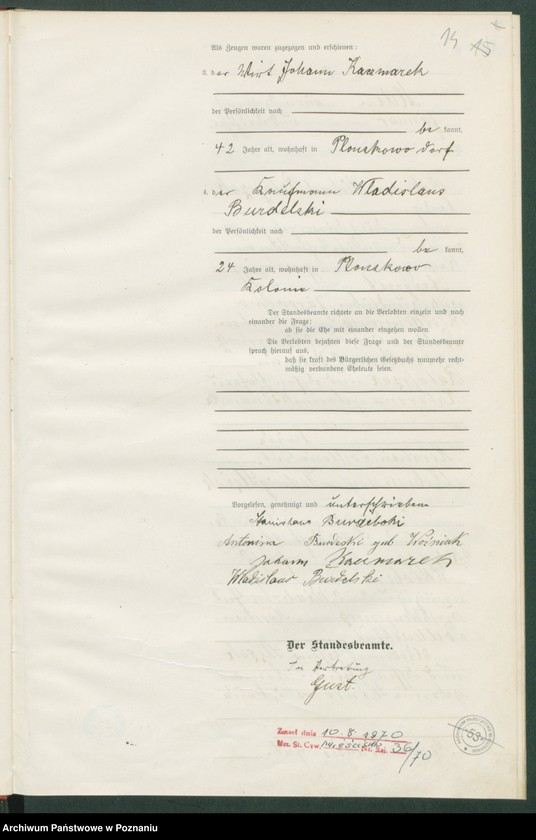 14 15
Als Zeugen waren zugezogen und erschienen:
3. der Wirt Johann Kaczmarek
der Persönlichkeit nach
be kannt,
42 Jahre alt, wohnhaft in Plonskowo dorf
4. der Kaufmann Wladislaus
Burdelski
der Persönlichkeit nach
be kannt,
24 Jahre alt, wohnhaft in Plonskowo
Kolonie
Der Standesbeamte richtete an die Verlobten einzeln und nach
einander die Frage:
ob sie die Ehe mit einander eingehen wollen.
Die Verlobten bejahten diese Frage und der Standesbeamte
sprach hierauf aus,
daß sie kraft des Bürgerlichen Gesetzbuchs nunmehr recht-
mäßig verbundene Eheleute seien.
Vorgelesen, genehmigt und unterschrieben
Stanislaus
Antonina geb Woźniak
Johann Kaczmarek
Wladislaus Burdelski
Der Standesbeamte.
In Vertretung
Gust.
Zmarł dnia 10.8.1970
Nr. 36/70
53
Archiwum Państwowe w Poznaniu